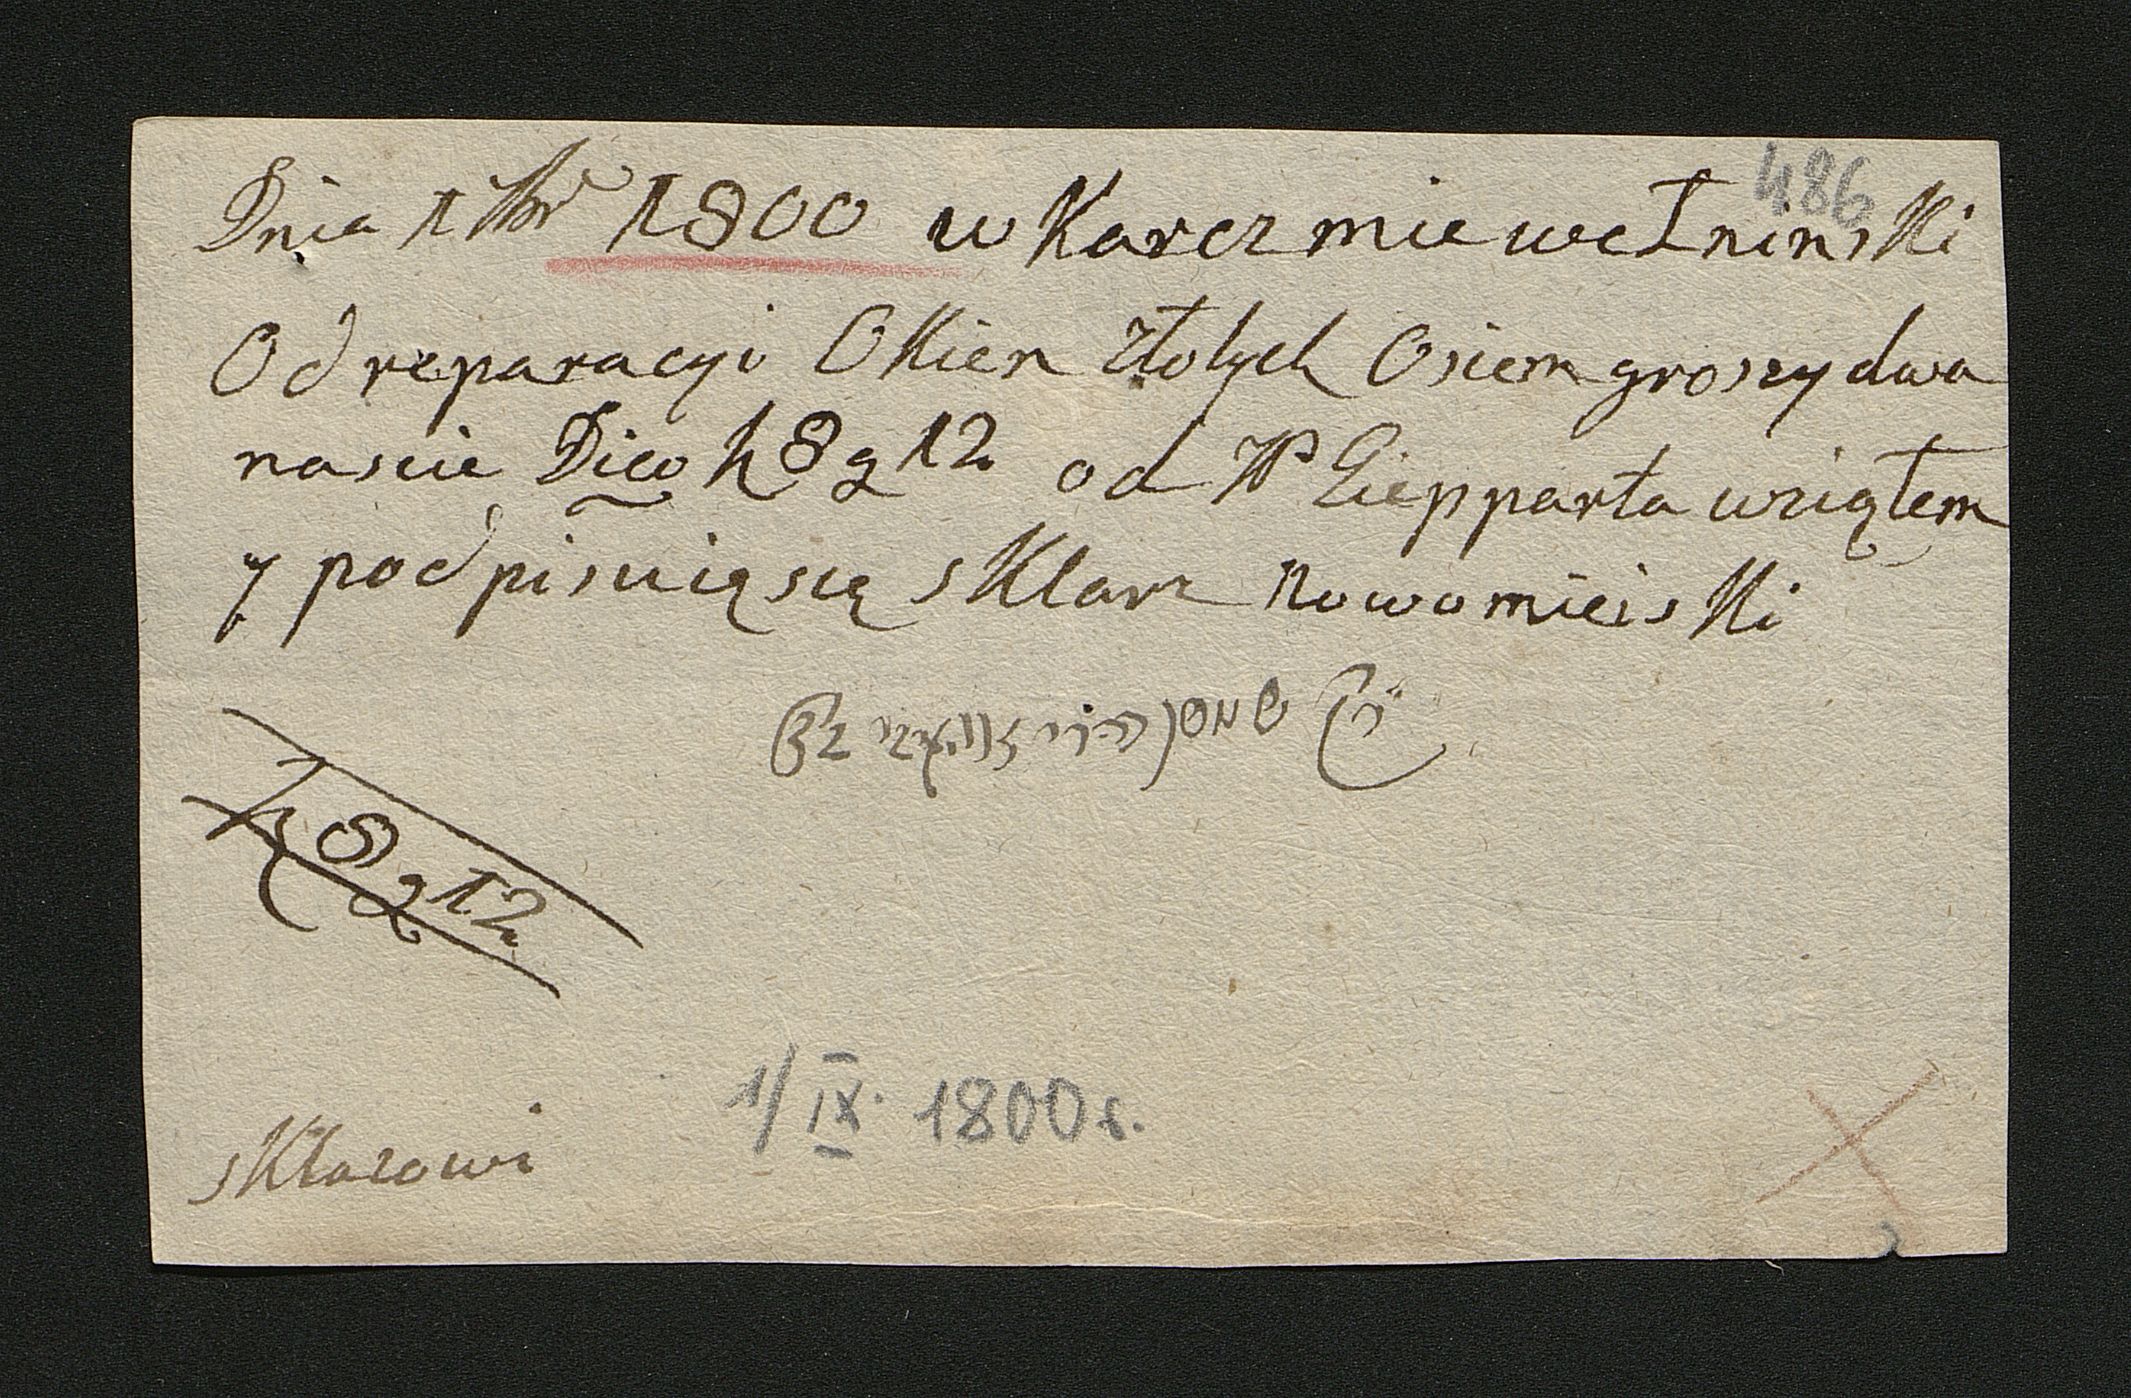 486
Dnia 1 7br 1800 w Karczmie wełninski
Od reparacyi Okien złotych Osiem groszy dwa
nascie Dico zł 8 g 12 od WP Liepparta wziąłem
y podpisuię się sklarz nowomieiski
zł 8 g 12
1/IX. 1800 r.
sklarowi